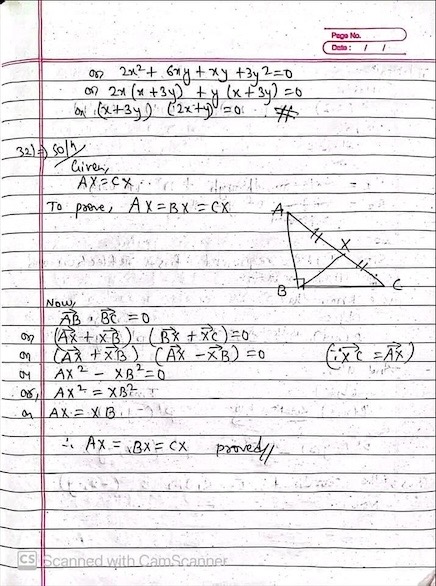 Page No.
Date: / /
or, 2x² + 6xy + xy + 3y² = 0
or 2x (x + 3y) + y (x + 3y) = 0
or (x+3y) (2x+y) = 0. #
32) ⇒ Solⁿ
Given,
AX = CX
To prove, AX = BX = CX
A
X
B
C
Now,
A⃗B⃗ . B⃗C⃗ = 0
or (A⃗X⃗ + X⃗B⃗) . (B⃗X⃗ + X⃗C⃗) = 0
or (A⃗X⃗ + X⃗B⃗) (A⃗X⃗ - X⃗B⃗) = 0 (∵ X⃗C⃗ = A⃗X⃗)
or AX² - XB² = 0
or, AX² = XB²
or AX = XB
∴ AX = BX = CX proved//
CS Scanned with CamScanner